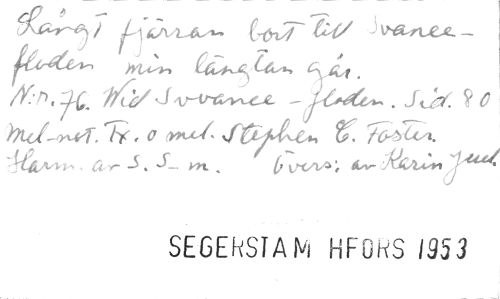 Långt fjärran bort till Svanee-
floden min längtan går.
N:r. 76. Wid Swanee-floden. Sid. 80
Mel-not. Tx. o mel. Stephen C. Foster.
Harm. av S. S-m. Övers: av Karin
SEGERSTAM HFORS 1953